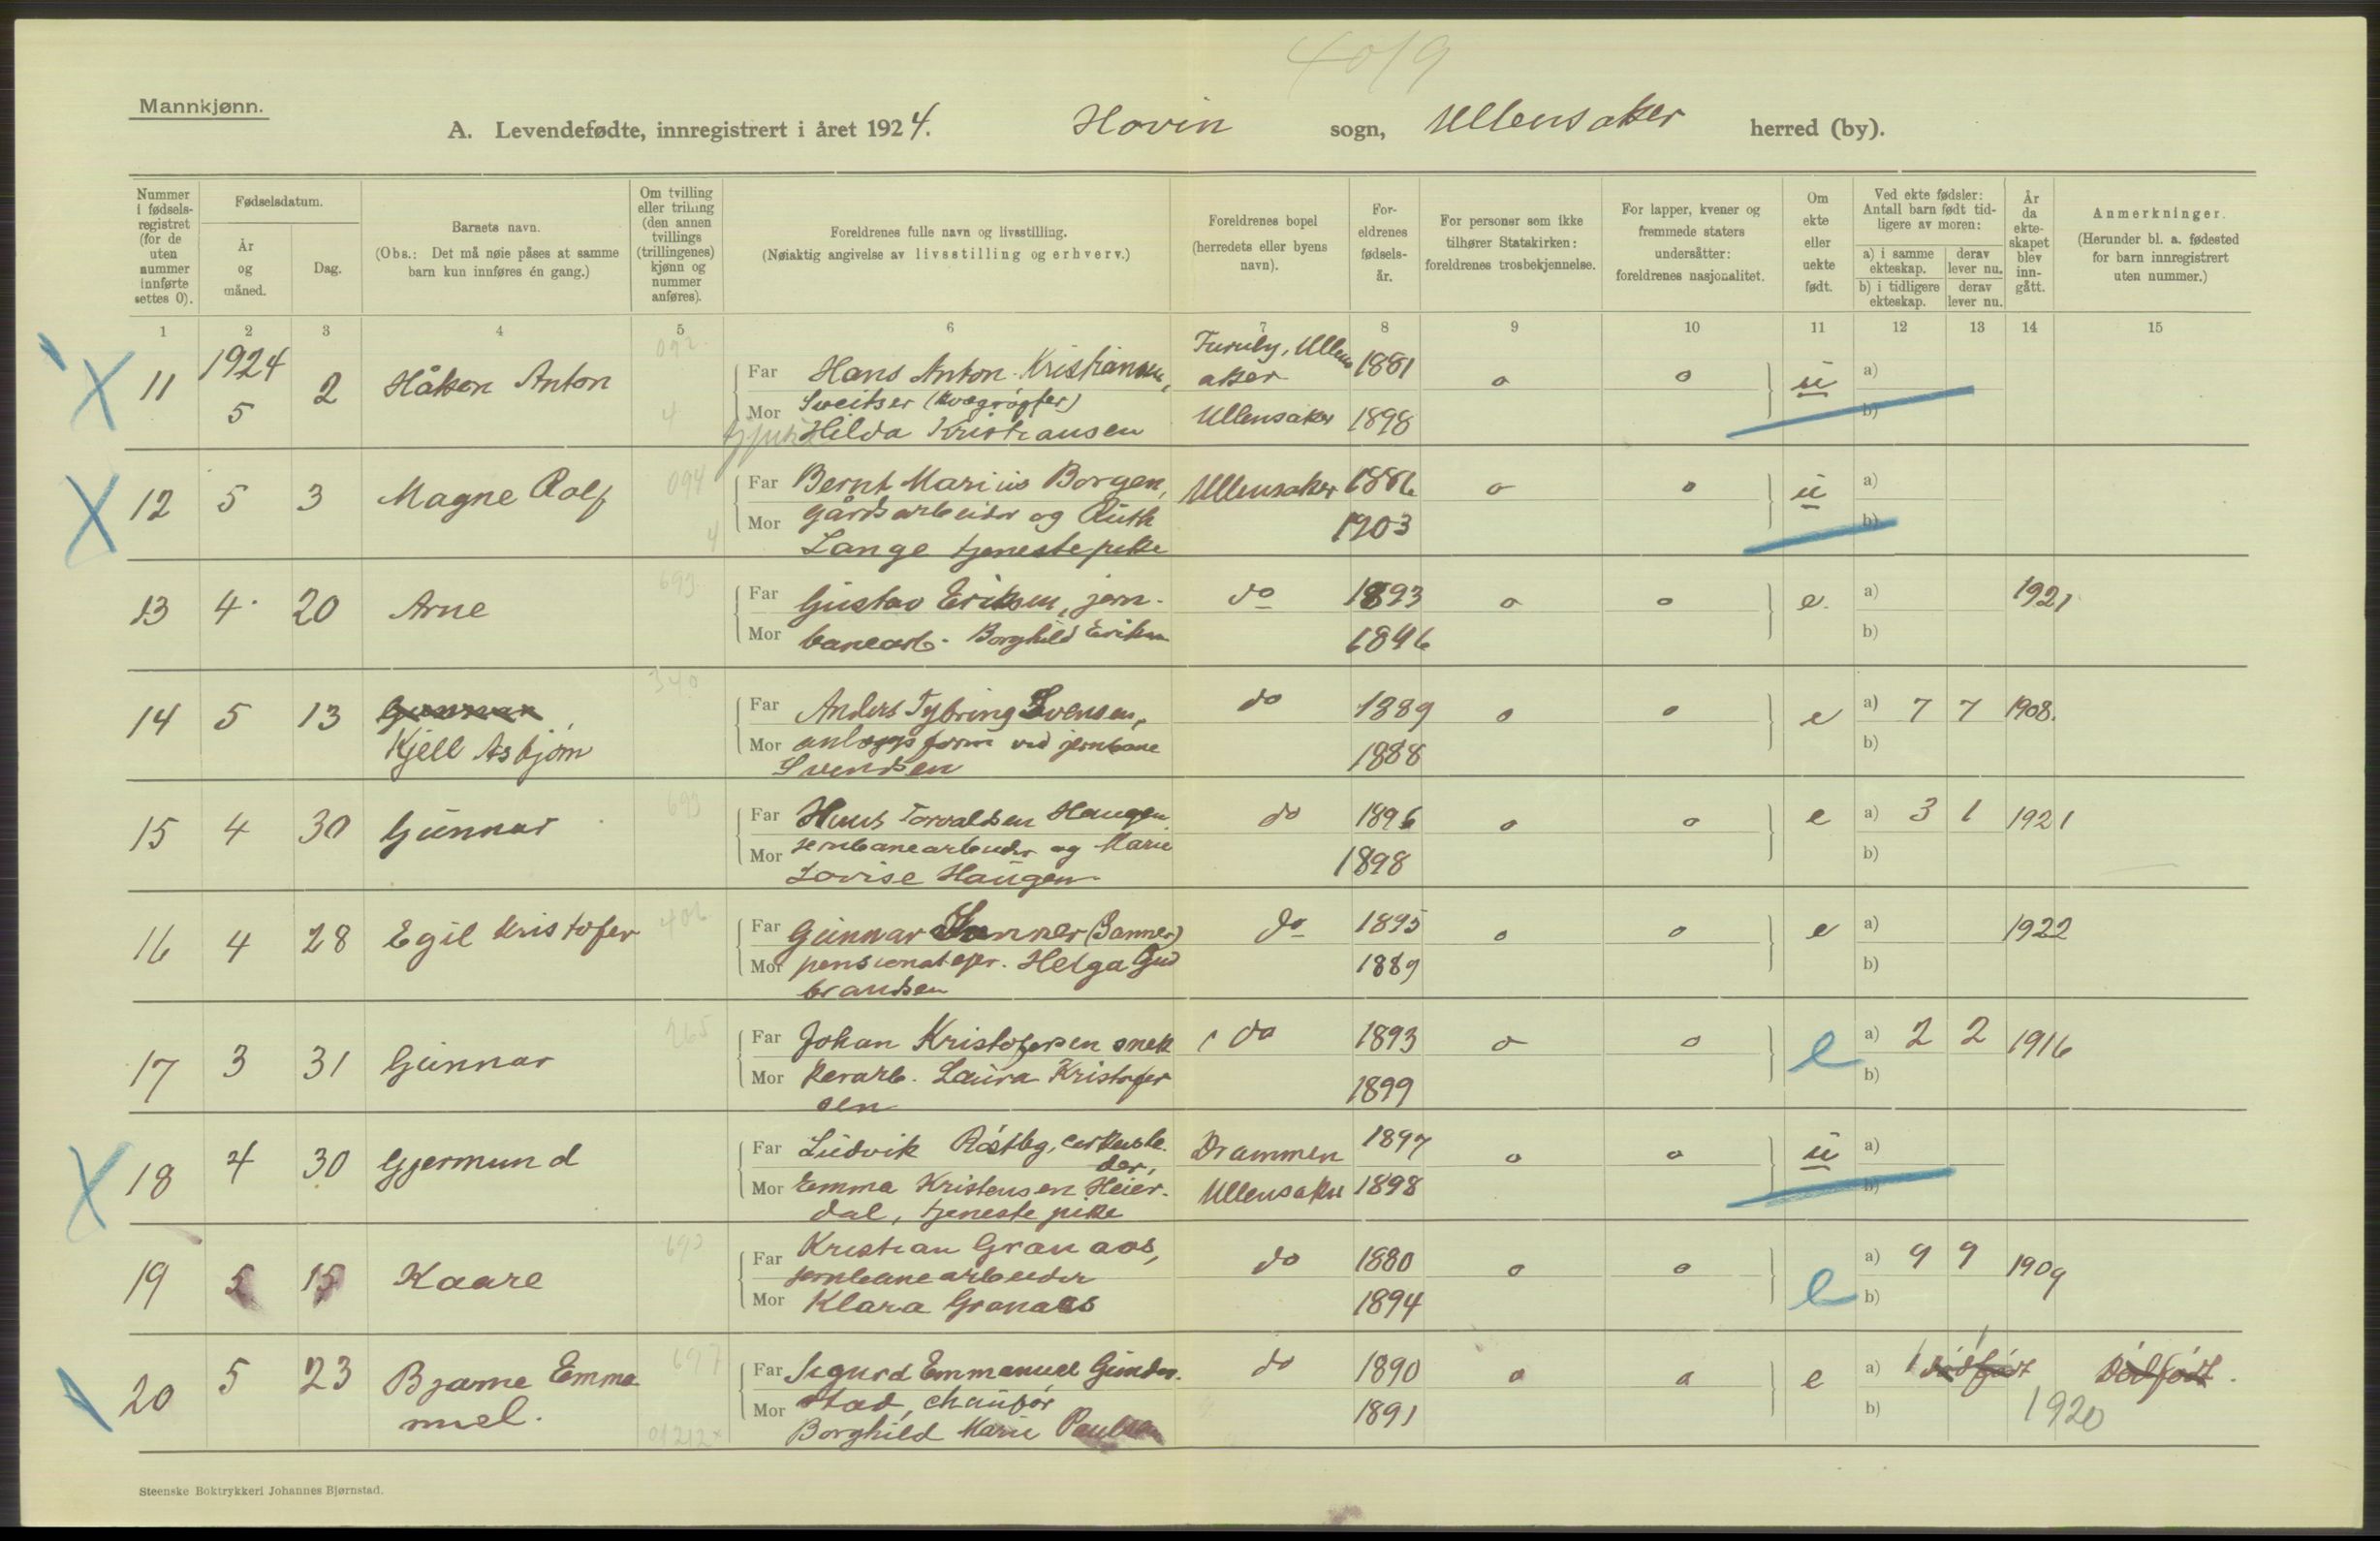 4019
Mannkjønn.
A. Levendefødte, innregistrert i året 1924. Hovin sogn, Ullensaker herred (by).
Nummer i fødselsregistret (for de uten nummer innførte settes 0).
Fødselsdatum.
År og måned.
Dag.
Barnets navn.
(Obs.: Det må nøie påses at samme barn kun innføres én gang.)
Om tvilling eller trilling (den annen tvillings (trillingenes) kjønn og nummer anføres).
Foreldrenes fulle navn og livsstilling.
(Nøiaktig angivelse av livsstilling og erhverv.)
Foreldrenes bopel (herredets eller byens navn).
Foreldrenes fødselsår.
For personer som ikke tilhører Statskirken: foreldrenes trosbekjennelse.
For lapper, kvener og fremmede staters undersåtter: foreldrenes nasjonalitet.
Om ekte eller uekte født.
Ved ekte fødsler: Antall barn født tidligere av moren:
a) i samme ekteskap. derav lever nu.
b) i tidligere ekteskap. derav lever nu.
År da ekteskapet blev inngått.
Anmerkninger.
(Herunder bl. a. fødested for barn innregistrert uten nummer.)
1 2 3 4 5 6 7 8 9 10 11 12 13 14 15
X 11 1924 5 2 Håkon Anton 092 4
Far Hans Anton Kristiansen, Furuby, Ullensaker 1881 o o u a)
Sveitser (kvægrøgter)
Mor Hilda Kristiansen Ullensaker 1898 b)
X 12 5 3 Magne Rolf 094 4
Far Bernt Marius Borgen, Ullensaker 1886 o o u a)
Mor gårdsarbeider og Ruth 1903 b)
Lange tjenestepike
13 4 20 Arne 693
Far Gustav Eriksen, jern- do 1893 o o e. a) 1921
Mor banearb. Borghild Eriksen 1896 b)
14 5 13 Gunnar 340
Kjell Asbjørn
Far Anders Tybring Svensen, do 1889 o o e a) 7 7 1908.
Mor anlægsform ved jernbane 1888 b)
Svendsen
15 4 30 Gunnar 693
Far Hans Torvaldsen Haugen do 1896 o o e a) 3 1 1921
Mor jernbanearbeider og Marie 1898 b)
Lovise Haugen
16 4 28 Egil Kristofer 406
Far Gunnar Sanner (Sanner) do 1895 o o e a) 1922
Mor pensionatejer. Helga Gud 1889 b)
brandsen
17 3 31 Gunnar 265
Far Johan Kristofersen snek do 1893 o o e a) 2 2 1916
Mor kerarb. Laura Kristofer 1899 b)
sen
X 18 4 30 Gjermund
Far Ludvik Drammen 1897 o o u a)
Mor Emma Kristensen Heier- Ullensaker 1898 b)
dal, tjenestepike
19 5 15 Kaare 693
Far Kristian Granaas, do 1880 o o e a) 9 9 1909
jernbanearbeider
Mor Klara Granaas 1894 b)
20 5 23 Bjarne Emma 697
nuel. 01212
Far Sigurd Emmanuel Gunder- do 1890 o o e a) 1 dødfødt 1 Dødfødt.
Mor stad, chaufør 1891 b) 1920
Borghild Marie Paulsen
Steenske Boktrykkeri Johannes Bjørnstad.